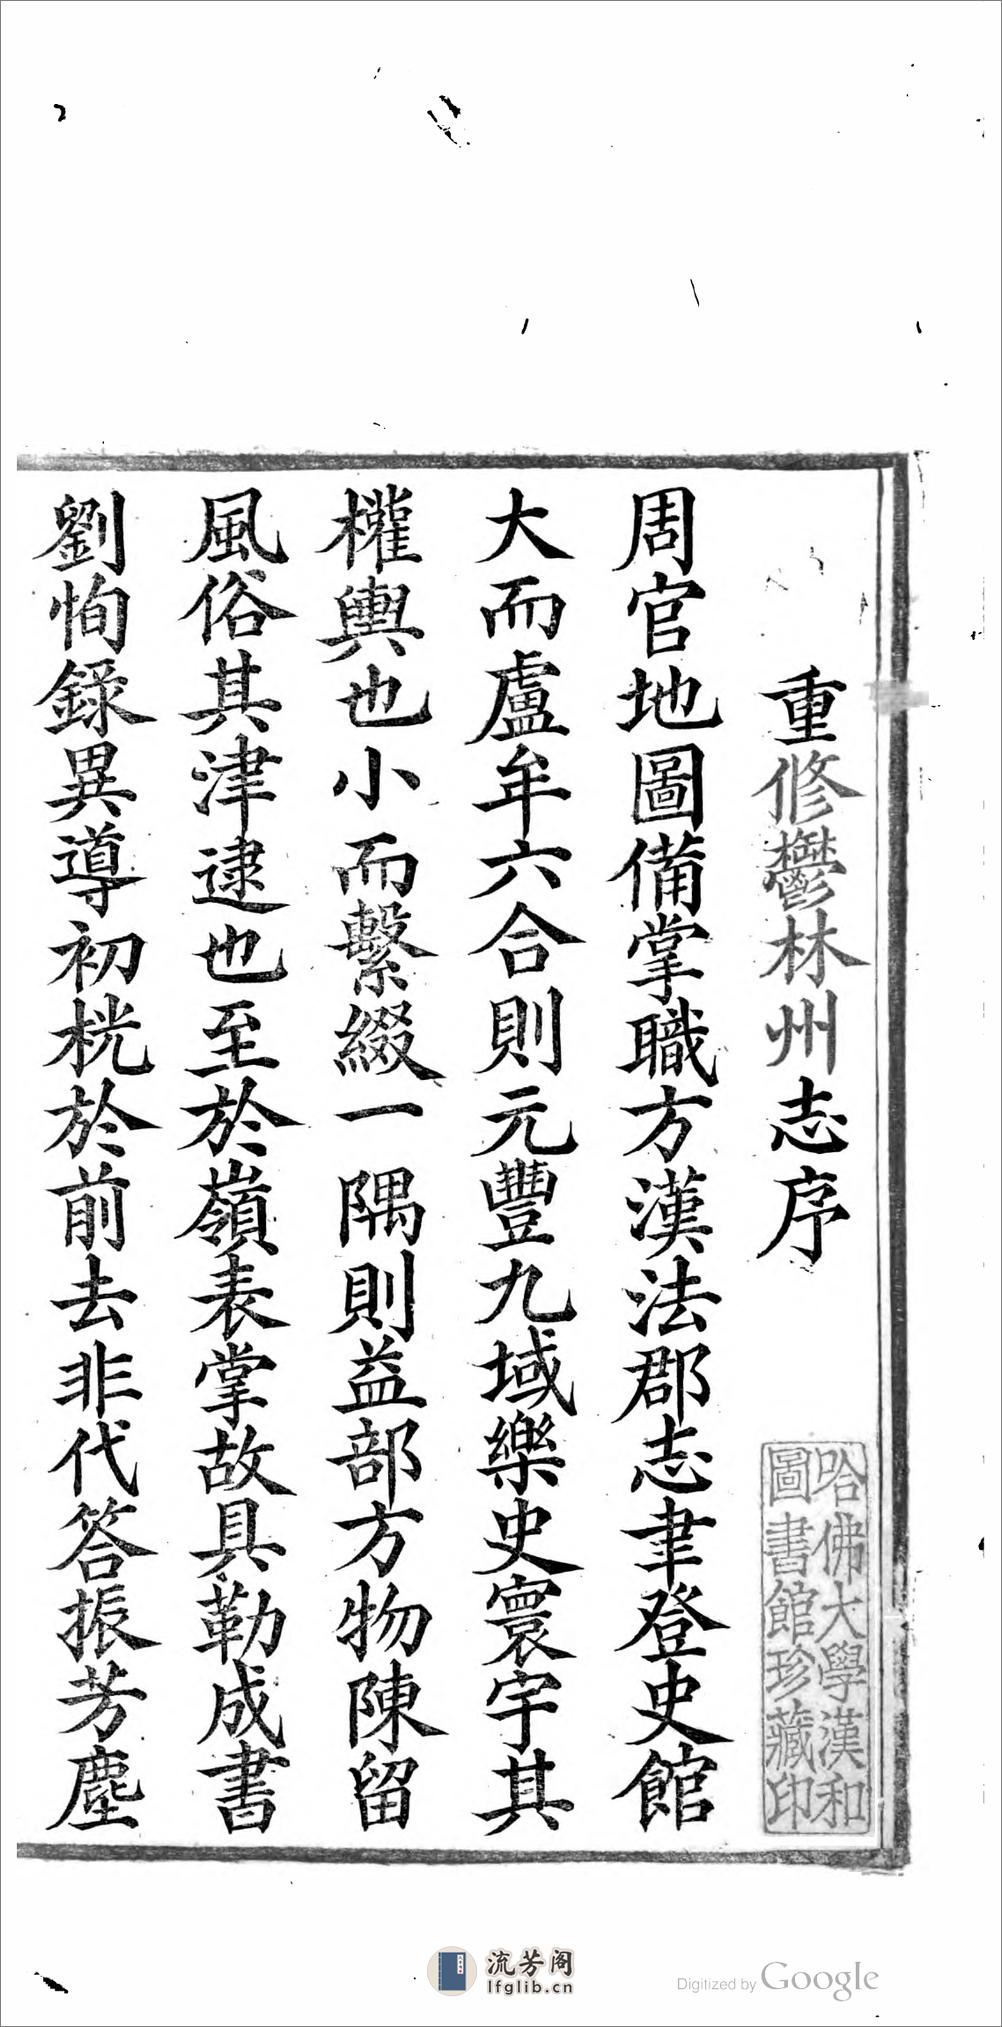 重修鬱林州志序
周官地圖備掌職方漢法郡志聿登史館
大而盧牟六合則元豐九域樂史寰宇其
權輿也小而繫綴一隅則益部方物陳留
風俗其津逮也至於嶺表掌故具勒成書
劉恂錄異導初桄於前去非代答振芳塵
哈佛大學漢和
圖書館珍藏印
流芳阁
lfglib.cn
Digitized by Google